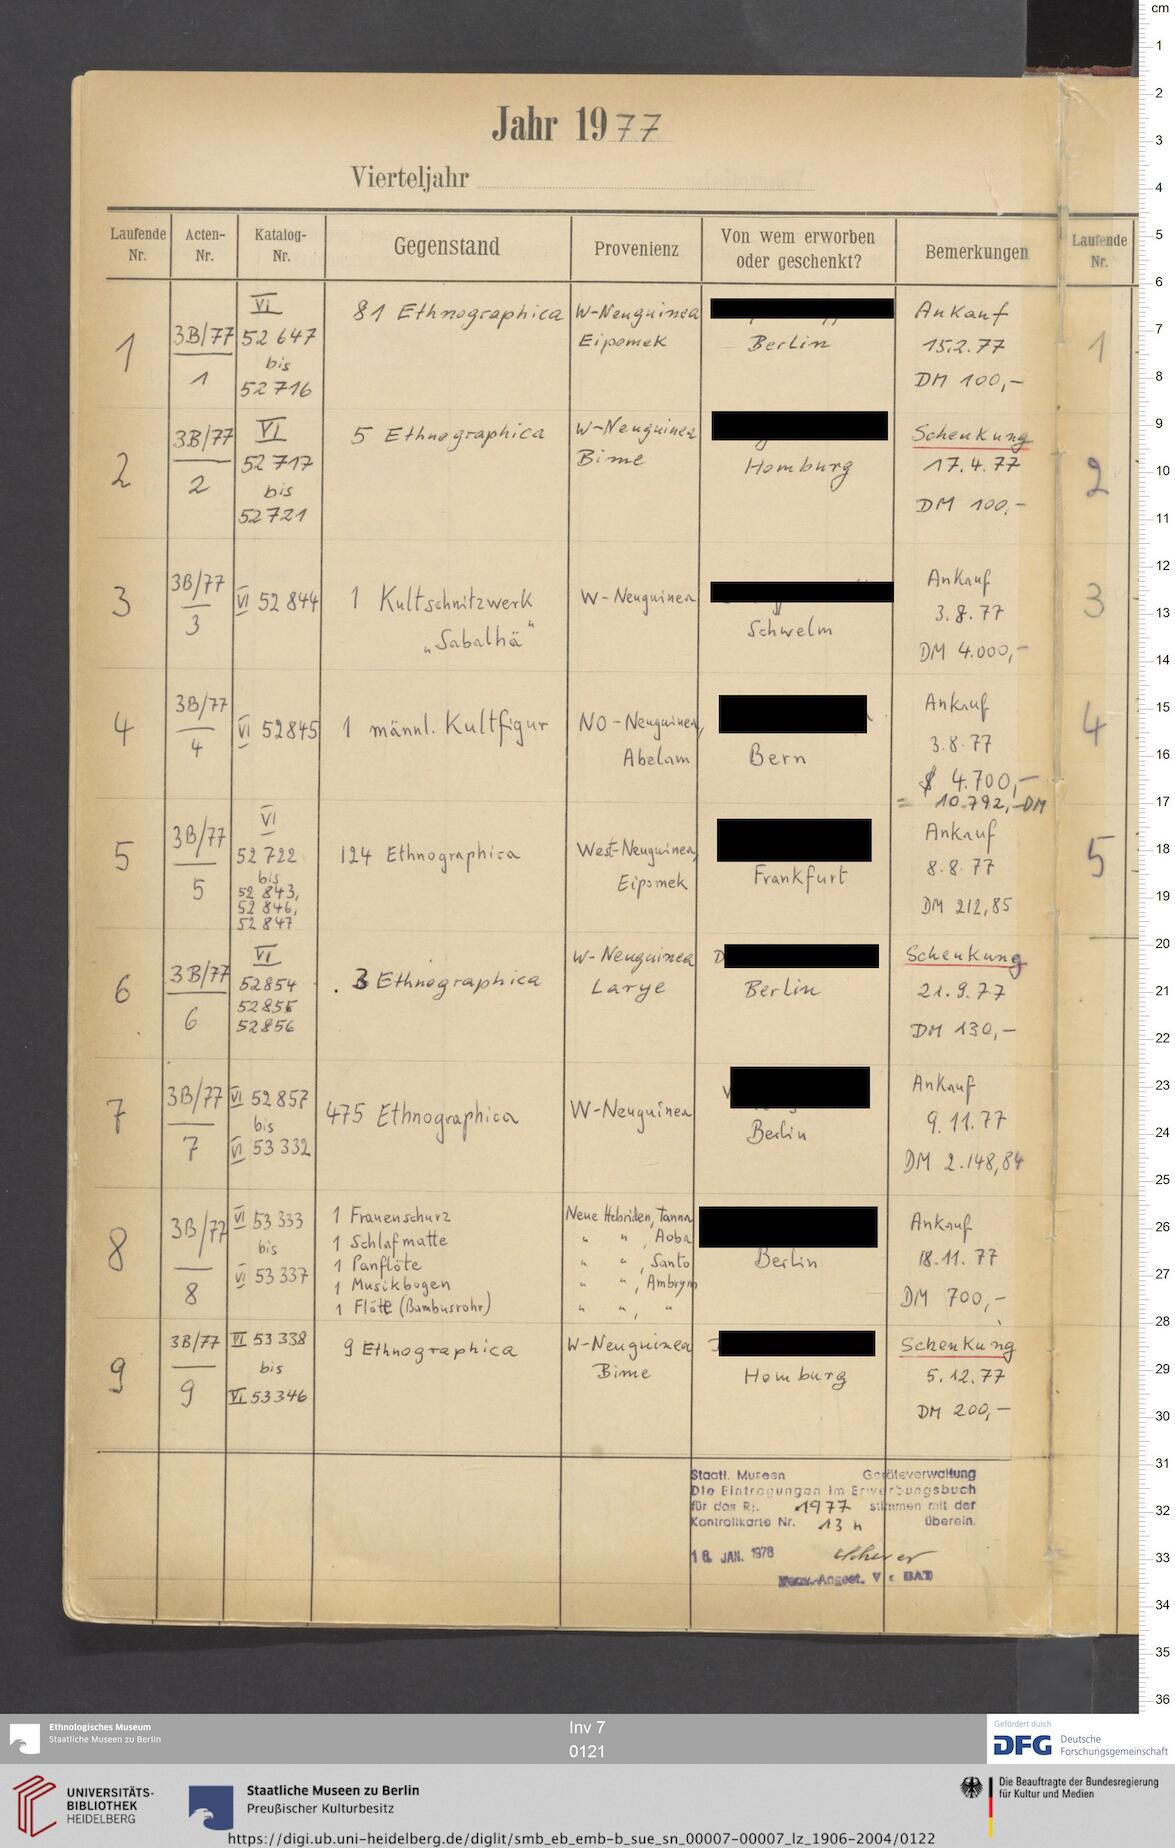 Jahr 1977
Vierteljahr
Laufende Nr. Acten-Nr. Katalog-Nr. Gegenstand Provenienz Von wem erworben oder geschenkt? Bemerkungen Laufende Nr.
1 3B/77 1 VI 52647 bis 52716 81 Ethnographica W-Neuguinea Eipomek Berlin Ankauf 15.2.77 DM 100,- 1
2 3B/77 2 VI 52717 bis 52721 5 Ethnographica W-Neuguinea Bime Homburg Schenkung 17.4.77 DM 100,- 2
3 3B/77 3 VI 52844 1 Kultschnitzwerk „Sabalhä“ W-Neuguinea Schwelm Ankauf 3.8.77 DM 4.000,- 3
4 3B/77 4 VI 52845 1 männl. Kultfigur NO-Neuguinea, Abelam Bern Ankauf 3.8.77 $ 4.700,- = 10.792,-DM 4
5 3B/77 5 VI 52722 bis 52843, 52846, 52847 124 Ethnographica West-Neuguinea, Eipomek Frankfurt Ankauf 8.8.77 DM 212,85 5
6 3B/77 6 VI 52854 52855 52856 3 Ethnographica W-Neuguinea Larye Berlin Schenkung 21.9.77 DM 130,-
7 3B/77 7 VI 52857 bis VI 53332 475 Ethnographica W-Neuguinea Berlin Ankauf 9.11.77 DM 2.148,84
8 3B/77 8 VI 53333 bis VI 53337 Berlin Ankauf 18.11.77 DM 700,-
1 Frauenschurz Neue Hebriden, Tanna
1 Schlafmatte " ", Aoba
1 Panflöte " ", Santo
1 Musikbogen " ", Ambrym
1 Flöte (Bambusrohr) " ", "
9 3B/77 9 VI 53338 bis VI 53346 9 Ethnographica W-Neuguinea Bime Homburg Schenkung 5.12.77 DM 200,-
Staatl. Museen Geräteverwaltung
Die Eintragungen im Erwerbungsbuch
für das Rj. 1977 stimmen mit der
Kontrollkarte Nr. 13 n überein.
16. JAN. 1978
cm
1
2
3
4
5
6
7
8
9
10
11
12
13
14
15
16
17
18
19
20
21
22
23
24
25
26
27
28
29
30
31
32
33
34
35
36
Ethnologisches Museum
Staatliche Museen zu Berlin
Inv 7
0121
Gefördert durch
DFG Deutsche
Forschungsgemeinschaft
UNIVERSITÄTS-
BIBLIOTHEK
HEIDELBERG
Staatliche Museen zu Berlin
Preußischer Kulturbesitz
Die Beauftragte der Bundesregierung
für Kultur und Medien
https://digi.ub.uni-heidelberg.de/diglit/smb_eb_emb-b_sue_sn_00007-00007_lz_1906-2004/0122